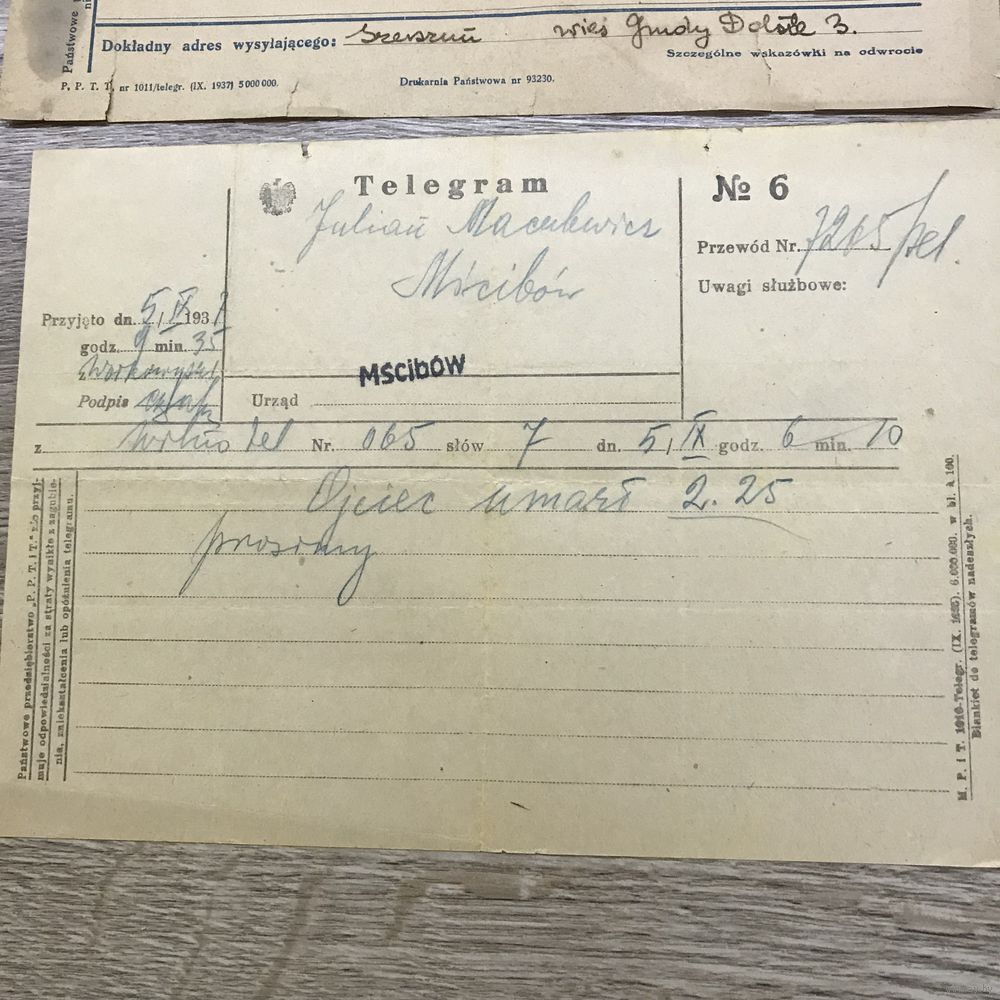 Państwowe
Dokładny adres wysyłającego: wieś Gmdy
Szczególne wskazówki na odwrocie
P. P. T. T. nr 1011/telegr. (IX. 1937) 5 000 000.
Drukarnia Państwowa nr 93230.
Telegram
№ 6
Julian
Mścibów
Przewód Nr. 7205/tel
Uwagi służbowe:
Przyjęto dn. 5/IX 1937
godz. 9 min. 35
z
Podpis
MŚCIBÓW
Urząd
z Wilno tel Nr. 065 słów 7 dn. 5/IX godz. 6 min. 10
Ojciec umarł 2. 25
prosimy
Państwowe przedsiębiorstwo „P. P. T. i T." nie przyj-
muje odpowiedzialności za straty wynikłe z zagubie-
nia, zniekształcenia lub opóźnienia telegramu.
M. P. i T. 1010-Telegr. (IX. 1935). 6.000.000. w bl. à 100.
Blankiet do telegramów nadeszłych.